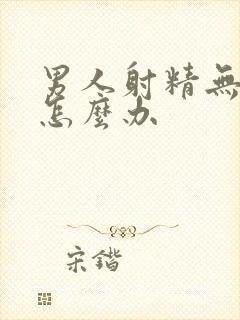 男人射精無
怎麼办
宋鍇